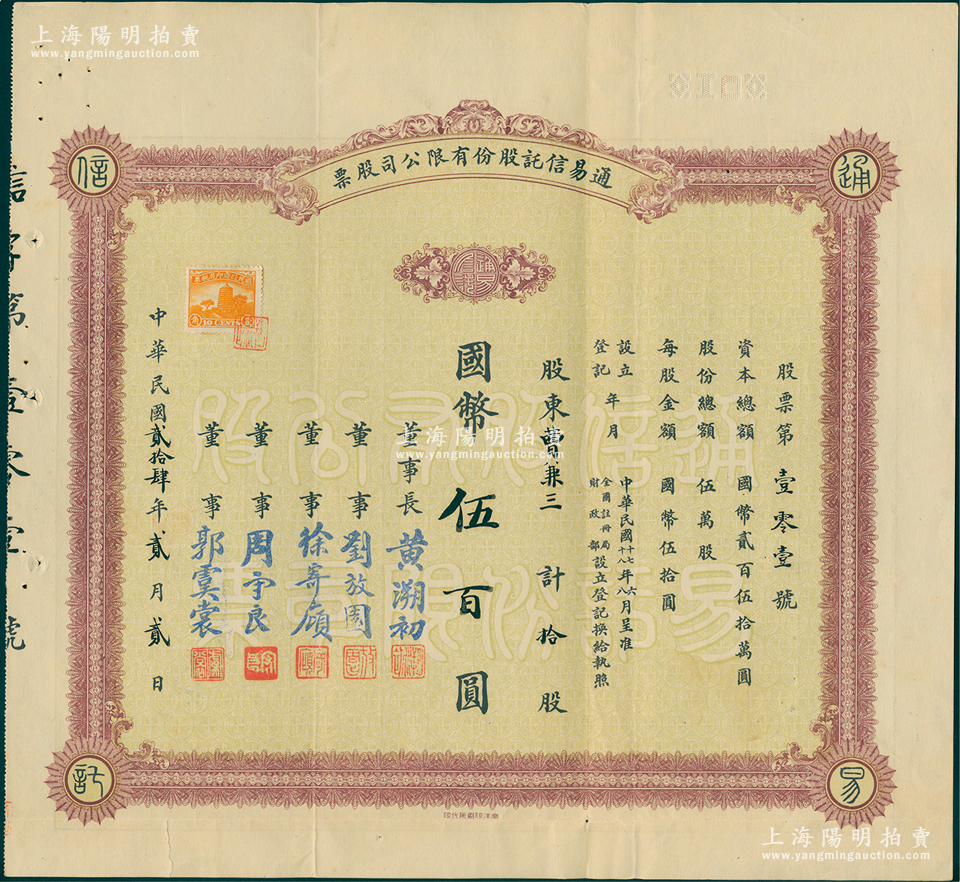 上海陽明拍賣
www.yangmingauction.com
通易信託股份有限公司股票
通
易
信
託
股票第壹零壹號
資本總額 國幣貳百伍拾萬圓
股份總額 伍萬股
每股金額 國幣伍拾圓
設立登記年月 中華民國十七年六月呈准全國註冊局
十八年八月財政部設立登記換給執照
股東曹兼三計拾股
國幣伍百圓
董事長 黃溯初
董事 劉放園
董事 徐寄廎
董事 周守良
董事 郭虞裳
中華民國貳拾肆年貳月貳日
10 CENTS
信字第壹零壹號
上海陽明拍賣
www.yangmingauction.com
上海陽明拍賣
www.yangmingauction.com